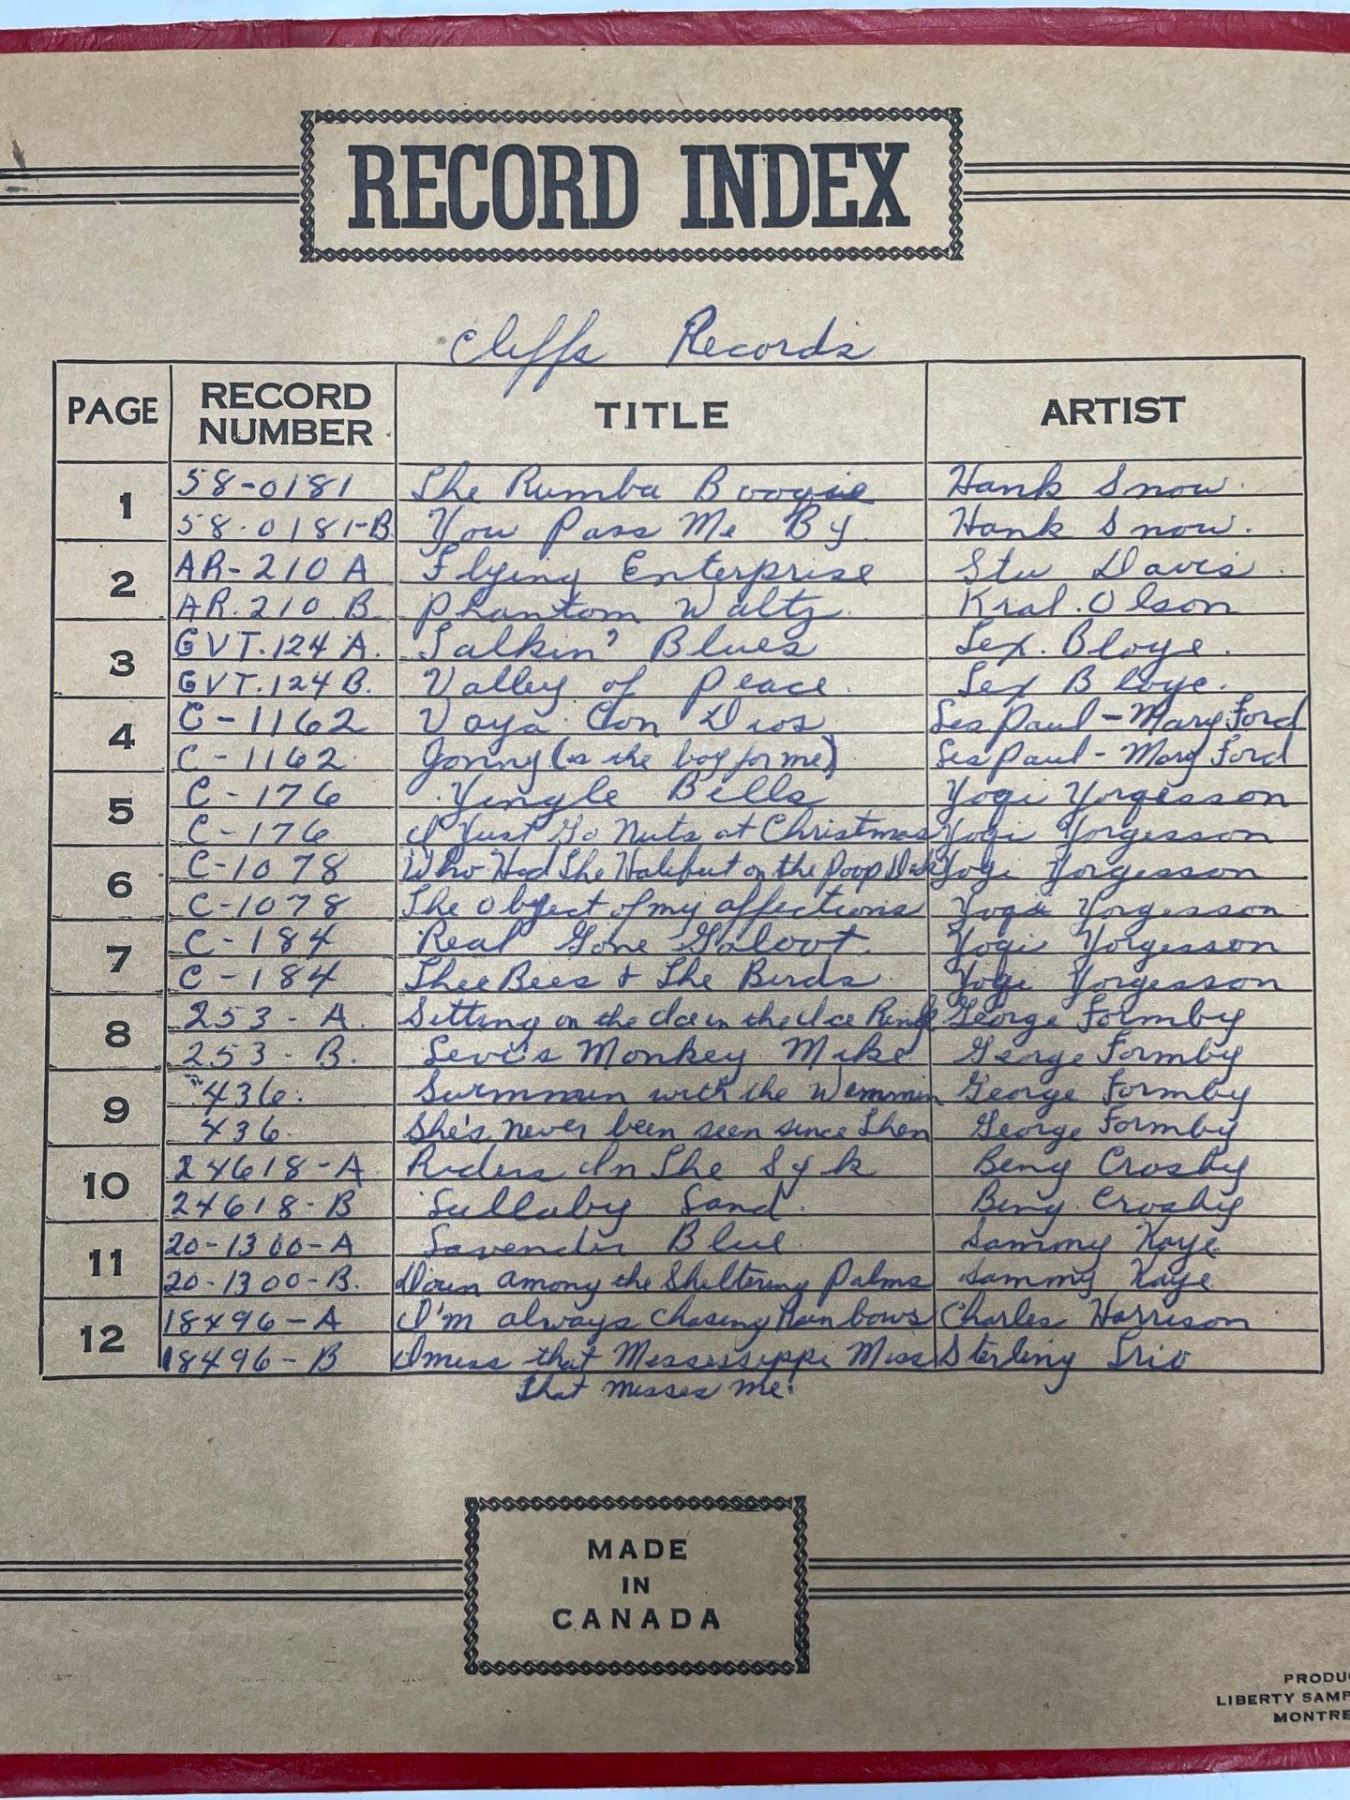 RECORD INDEX
Cliffs Records
PAGE RECORD NUMBER TITLE ARTIST
1 58-0181 The Rumba Boogie Hank Snow.
58-0181-B You Pass Me By Hank Snow.
2 AR-210 A Flying Enterprise Stu Davis
AR.210 B. Phantom Waltz Kral. Olson
3 GVT.124 A. Talkin' Blues Tex. Bloye.
GVT.124 B. Valley of Peace. Tex Bloye.
4 C-1162 Vaya Con Dios Les Paul - Mary Ford
C-1162 Jonny (is the boy for me) Les Paul - Mary Ford
5 C-176 Yingle Bells Yogi Yorgesson
C-176 I Yust Go Nuts at Christmas Yogi Yorgesson
6 C-1078 Who Hid The Halibut on the Poop Deck Yogi Yorgesson
C-1078 The Object of my affections Yogi Yorgesson
7 C-184 Real Gone Galoot Yogi Yorgesson
C-184 Thee Bees & The Birds Yogi Yorgesson
8 253-A. Sitting on the Ice in the Ice Rink George Formby
253-B. Levi's Monkey Mike George Formby
9 436. Swimmin with the Wimmin George Formby
436. She's never been seen since Then George Formby
10 24618-A Riders In The Syk Bing Crosby
24618-B Lullaby Land. Bing Crosby
11 20-1300-A Lavender Blue Sammy Kaye
20-1300-B. Down among the Sheltering Palms Sammy Kaye
12 18496-A I'm always chasing Rainbows Charles Harrison
18496-B I miss that Mississippi Miss Sterling Trio
That misses me.
MADE
IN
CANADA
PRODU
LIBERTY SAMP
MONTRE